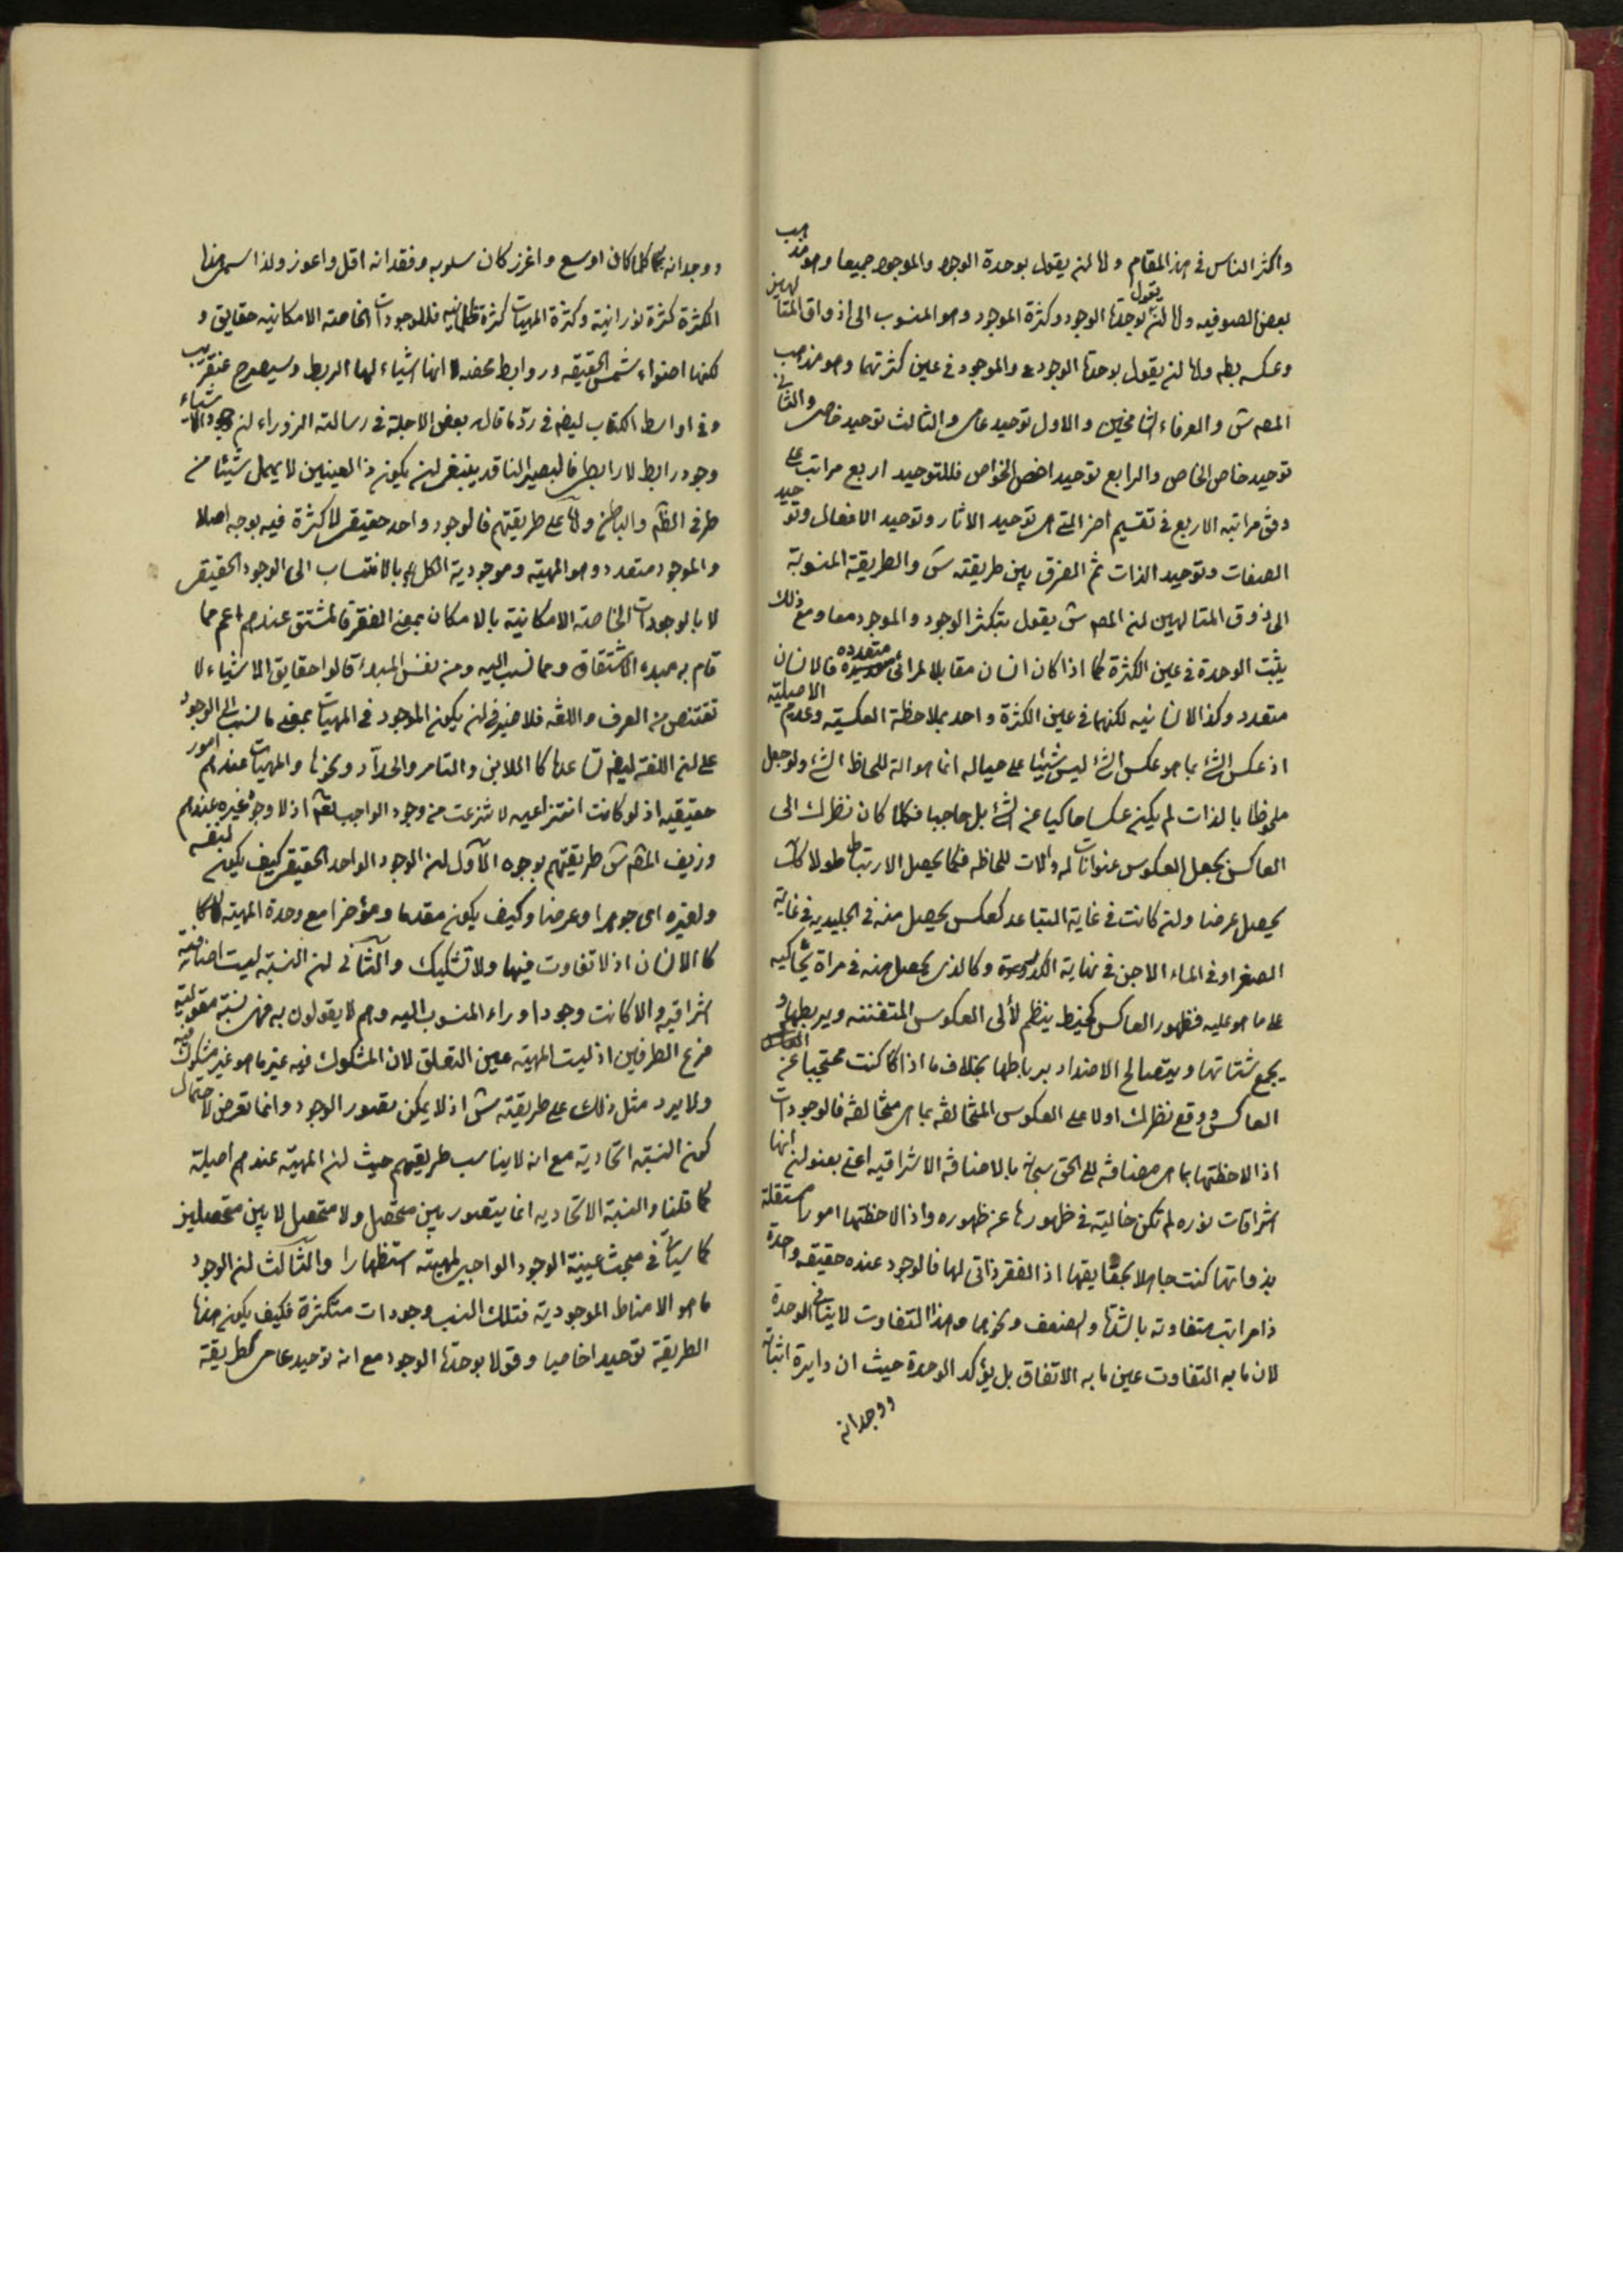 واكثر الناس فى هذا المقام واما ان يقول بوحدة الوجود والموجود جميعا وهو مذهب
بعض الصوفيه واما ان يقول بوحدة الوجود وكثرة الموجود وهو المنسوب الى اذواق المتالهين
وعكسه بطم واما ان يقول بوحدة الوجود والموجود فى عين كثرتهما وهو مذهب
المصه ش والعرفاء الشامخين والاول توحيد عامى والثالث توحيد خاصى والثانى
توحيد خاص الخاص والرابع توحيد اخص الخواص فللتوحيد اربع مراتب على
وفق مراتبه الاربع فى تقسيم اخر التى هى توحيد الاثار وتوحيد الافعال وتوحيد
الصفات وتوحيد الذات ثم الفرق بين طريقته س والطريقة المنسوبة
الى ذوق المتالهين ان المصه ش يقول بتكثر الوجود والموجود معا ومع ذلك
يثبت الوحدة فى عين الكثرة كما اذا كان انسان مقابلا لمرائى متعدده فالانسان
متعدد وكذا الانسانيه لكنهما فى عين الكثرة واحد بملاحظة العكسية وعدم الاصيلية
اذ عكس الشئ بما هو عكس الشئ ليس شيئا على حياله انما هو الة للحاظ الشئ ولو جعل
ملحوظا بالذات لم يكن عكسا حاكيا عن الشئ بل حاجبا فكلما كان نظرك الى
العاكس بجعل العكوس عنوانات له والات للحاظه فكما يحصل الارتباط طولا كك
يحصل عرضا وان كانت فى غاية التباعد كعكس يحصل منه فى الجليديه فى غاية
الصغر او فى الماء الاجن فى نهاية الكدورة وكالذى يحصل منه فى مراة يحاكيه
على ما هو عليه فظهور العاكس كخيط ينظم لألى العكوس المتفننه ويربطها و
يجمع شتاتها ويتصالح الاضداد برباطها بخلاف ما اذا كنت محتجبا عن
العاكس ووقع نظرك اولا على العكوس المتخالفه بما هى متخالفه فالوجودات
اذا لاحظتها بما هى مضافه الى الحق سبحانه بالاضافه الاشراقيه اعنى بعنوان انها
اشراقات نوره لم تكن خالية فى ظهورها عن ظهوره واذا لاحظتها امورا مستقلة
بذواتها كنت جاهلا بحقايقها اذ الفقر ذاتى لها فالوجود عنده حقيقه واحدة
ذا مراتب متفاوته بالشدة والضعف ونحوهما وهذا التفاوت لاينافى الوحدة
لان ما به التفاوت عين ما به الاتفاق بل يؤكد الوحدة حيث ان دايرة اثباته
ووجدانه
ووجدانه كلما كان اوسع واغزر كان سلوبه وفقدانه اقل واعوز ولذا سمى هذا
الكثرة كثرة نورانية وكثرة المهيات كثرة ظلمانيه فللوجودات الخاصه الامكانيه حقايق و
لكنها اضواء شمس الحقيقه وروابط محضه لا انها اشياء لها الربط وسيصرح عنقريب
وفى اواسط الكتاب ايضه فى رد ما قال بعض الاجلة فى رسالته الزوراء ان وجود الاشياء
وجود رابط لا رابطى فالبصير الناقد ينبغى ان يكون ذا العينين لا يهمل شيئا من
طرفى الظاهر والباطن واما على طريقتهم فالوجود واحد حقيقى لا كثرة فيه بوجه اصلا
والموجود متعدد وهو المهيه وموجودية الكل بالانتساب الى الوجود الحقيقى
لا بالوجودات الخاصة الامكانية بالامكان بمعنى الفقر فالمشتق عندهم اعم مما
قام به مبدء الاشتقاق ومما نسب اليه ومن نفس المبدء قالوا حقايق الاشياء لا
تقتنص من العرف واللغه فلا ضير فى ان يكون الموجود فى المهيات بمعنى مانسب الى الوجود
على ان اللغة ايضه تساعدنا كاللابن والتامر والحداد ونحوها والمهيات عندهم امور
حقيقيه اذ لو كانت انتزاعيه لانتزعت من وجود الواجب تعه اذ لا وجود غيره عندهم
وزيف المصه ش طريقتهم بوجوه الاول ان الوجود الواحد الحقيقى كيف يكون لنفسه
ولغيره اى جوهرا وعرضا وكيف يكون مقدما ومؤخرا مع وحدة المهية
كالانسان اذ لا تفاوت فيها ولا تشكيك والثانى ان النسبة ليست اضافيته
اشراقيه والا كانت وجودا وراء المنسوب اليه وهم لا يقولون به فهى نسبة مقولية
فرع الطرفين اذ ليست المهية عين التعلق لان المشكوك فيه غير ما هو غير مشكوك فيه
ولايرد مثل ذلك على طريقته ش اذ لا يمكن تصور الوجود وانما تعرض لاحتمال
كون النسبة اتحادية مع انه لا يناسب طريقتهم حيث ان المهية عندهم اصيلة
كما قلنا والنسبة الاتحاديه انما يتصور بين متحصل ولا متحصل لا بين متحصلين
كما سيأتى فى مبحث عينية الوجود الواجبى لمهيته استظهارا والثالث ان الوجود
ما هو الامناط الموجودية فتلك النسب وجودات متكثرة فكيف يكون هذا
الطريقة توحيدا خاصيا وقولا بوحدة الوجود مع انه توحيد عامى كطريقة